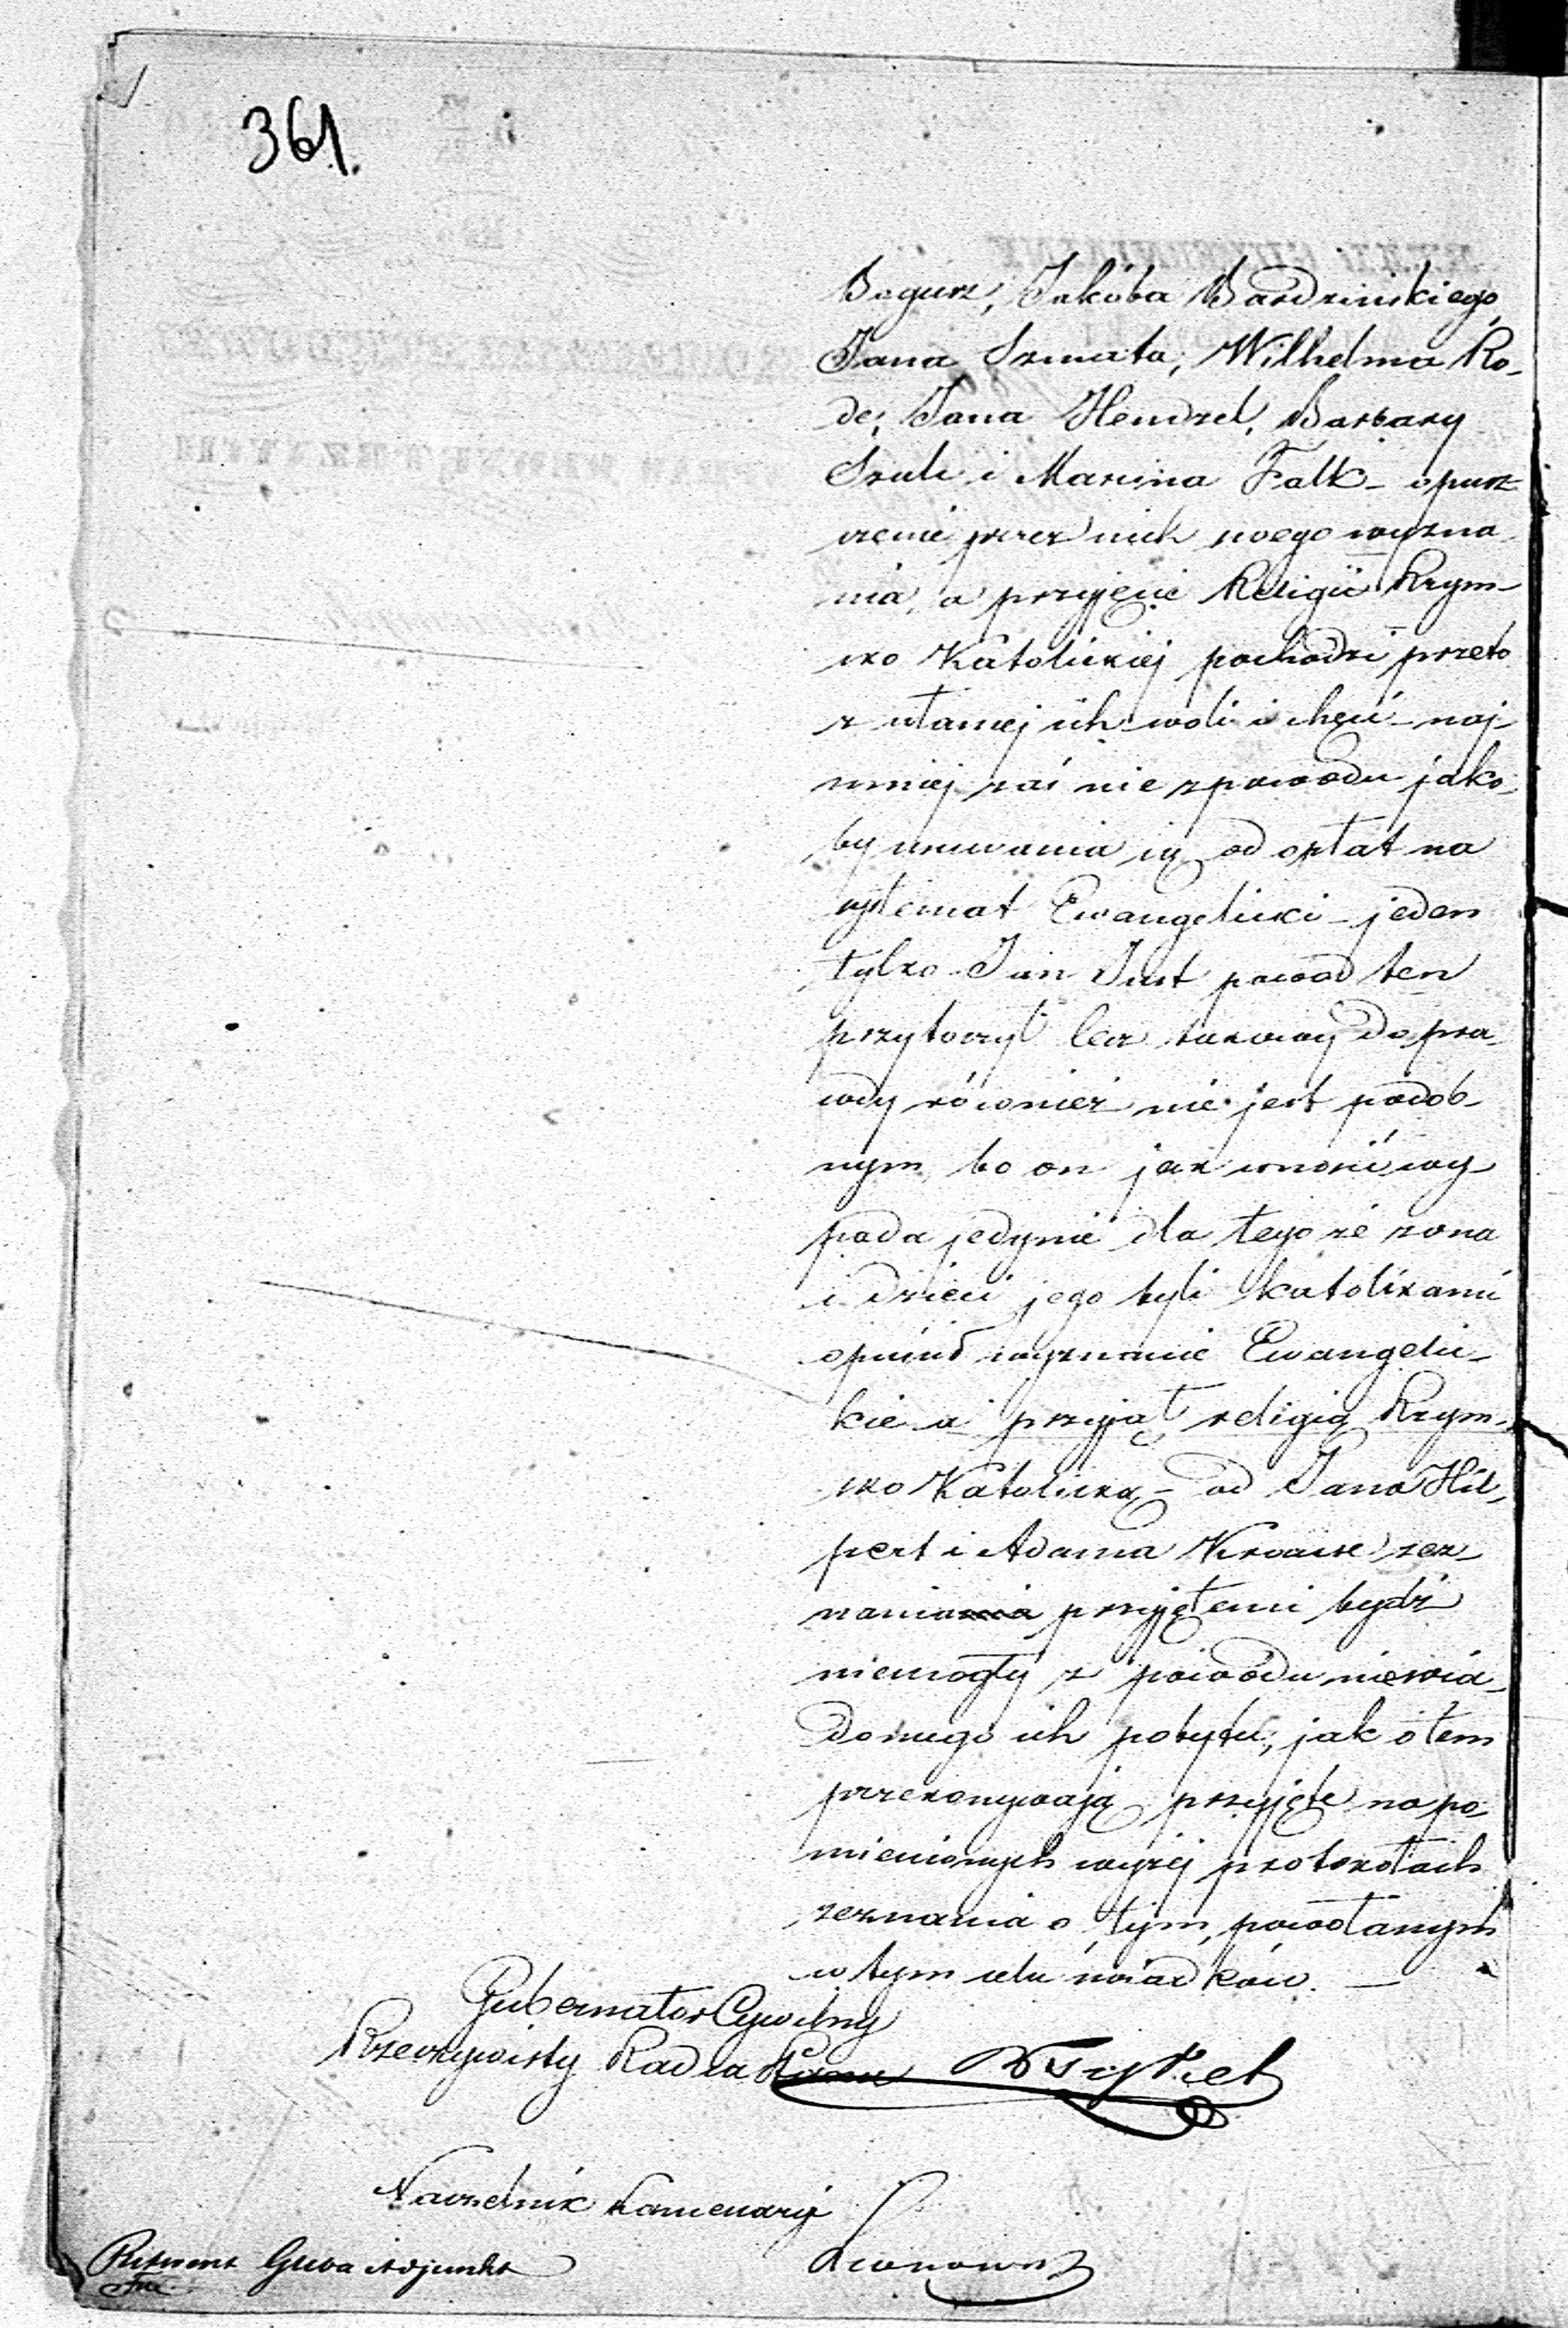 361.
Bogusz, Jakóba Bardzinskiego,
Jana Szmata, Wilhelma Ro-
de, Jana Hendzel, Barbary
Szulc i Marcina Falk – opusz
czenie przez nich swego wyzna-
nia, a przyjęcie Religii Rzym-
sko Katolickiej pochodzi przeto
z własnej ich woli i chęci – naj-
mniej zaś nie z powodu jako-
by usuwania się od opłat na
etemat Ewangelicki – jeden
tylko Jan Just powód ten
przytoczył lecz takowy do pra-
wdy również nie jest podob-
nym, bo on jak wnosić wy
pada jedynie dla tego że żona
i dzieci jego byli katolikami
opuścił wyznanie Ewangelic-
kie a przyjął religią Rzym-
sko Katolicką – od Jana Hil-
pert i Adama Krause zez-
nania przyjętemi bydź
niemogły z powodu niewia-
domego ich pobytu, jak o tem
przekonywają przyjęte na po-
mienionych wyżej protokółach
zeznania o tym, powołanych
w tym celu świadków. –
Gubernator Cywilny
Rzeczywisty Radca Stanu
Naczelnik Kancellaryi
Referent Guba Adjunkt